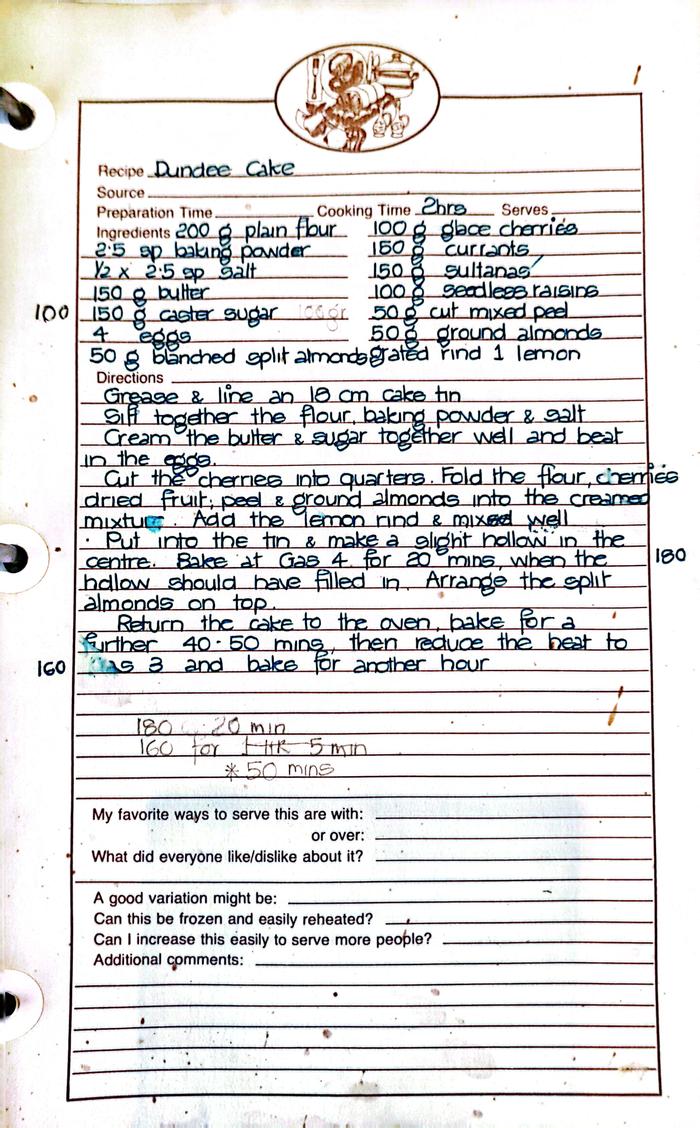 Recipe Dundee Cake
Source
Preparation Time Cooking Time 2hrs Serves
Ingredients 200 g plain flour 100 g glace cherries
2.5 sp baking powder 150 g currants
1/2 x 2.5 sp salt 150 g sultanas
150 g butter 100 g seedless raisins
100 150 g caster sugar 100gr 50 g cut mixed peel
4 eggs 50 g ground almonds
50 g blanched split almonds grated rind 1 lemon
Directions
Grease & line an 18 cm cake tin
Sift together the flour, baking powder & salt
Cream the butter & sugar together well and beat
in the eggs.
Cut the cherries into quarters. Fold the flour, cherries
dried fruit, peel & ground almonds into the creamed
mixture. Add the lemon rind & mixed well
Put into the tin & make a slight hollow in the
centre. Bake at Gas 4 for 20 mins, when the 180
hollow should have filled in. Arrange the split
almonds on top.
Return the cake to the oven, bake for a
further 40-50 mins, then reduce the heat to
160 Gas 3 and bake for another hour
180 20 min
160 for 1 HR 5 min
* 50 mins
My favorite ways to serve this are with:
or over:
What did everyone like/dislike about it?
A good variation might be:
Can this be frozen and easily reheated?
Can I increase this easily to serve more people?
Additional comments: